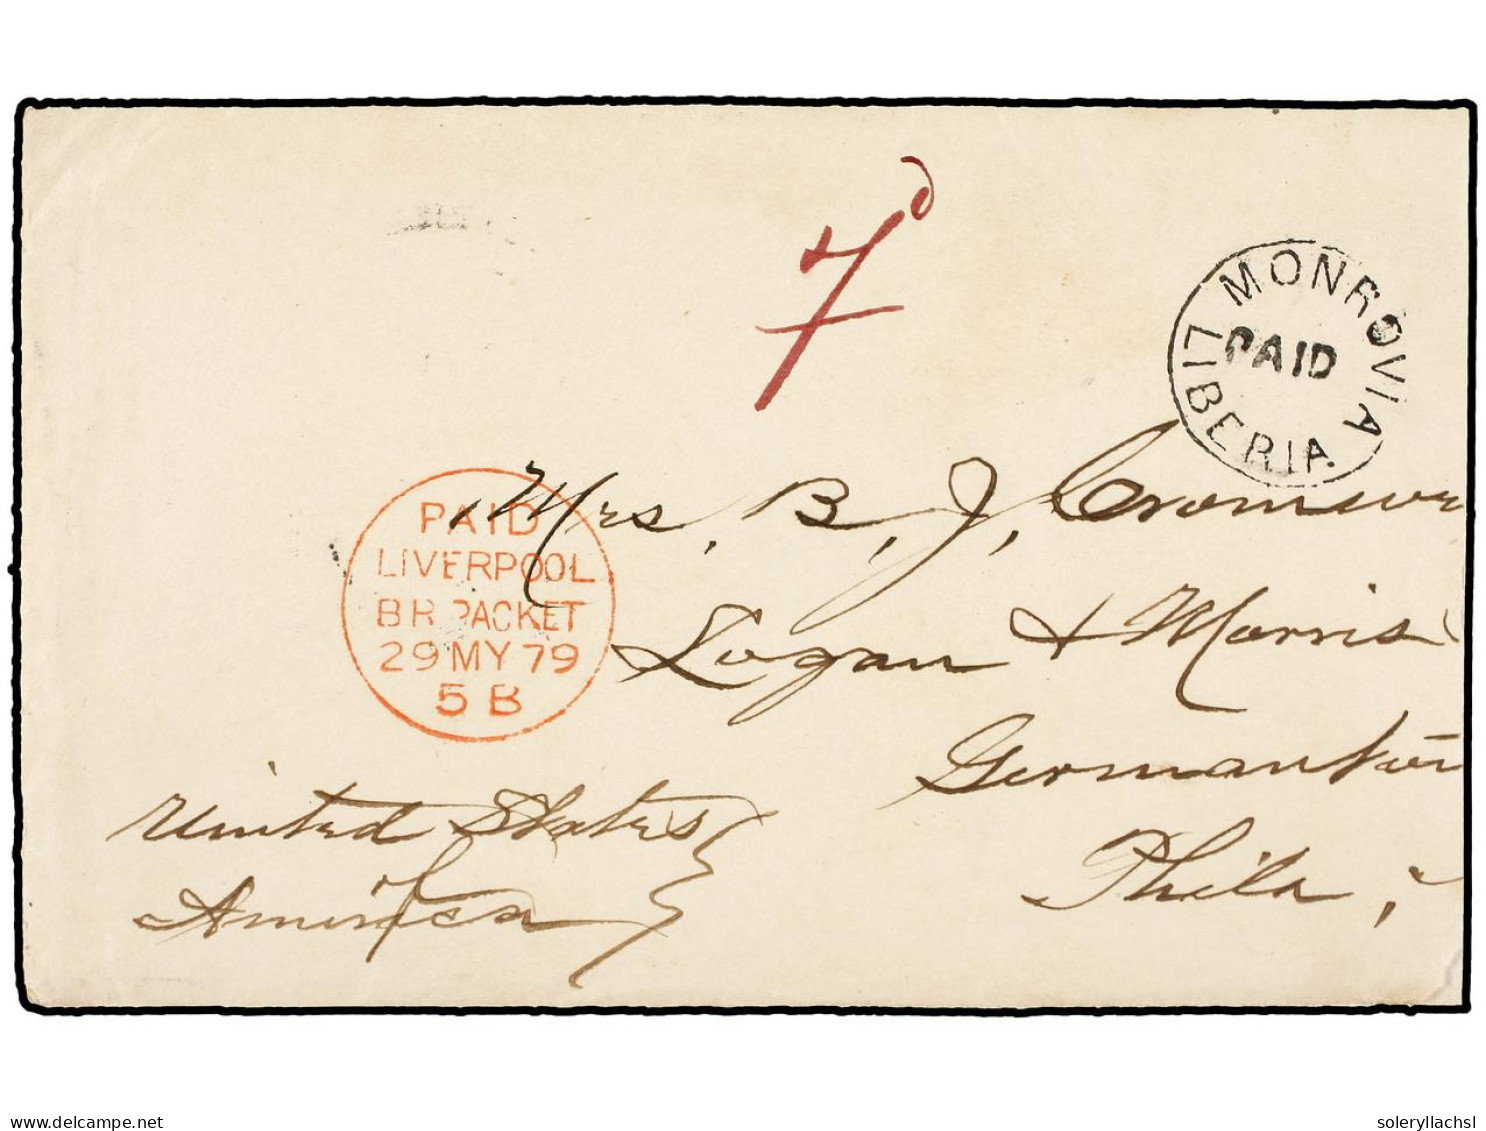 7d
MONROVIA
PAID
LIBERIA
PAID
LIVERPOOL
BR PACKET
29 MY 79
5 B
Mrs. B. J.
Logan & Morris
Germantow
Phila,
United States
America
delcampe.net
soleryllachsl